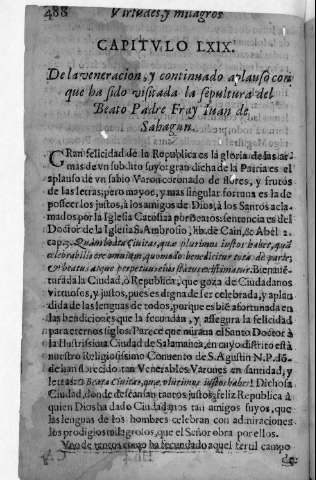 488 Virtudes, y milagros
CAPITVLO LXIX.
De la veneracion, y continuado aplauso con
que ha sido visitada la sepultura del
Beato Padre Fray Iuan de
Sahagun.
GRan felicidad de la Republica es la gloria de las ar-
mas de vn subdito suyo: gran dicha de la Patria es el
aplauso de vn sabio Varon coronado de flores, y frutos
de las letras; pero mayor, y mas singular fortuna es la de
posseer los justos, à los amigos de Dios, à los Santos acla-
mados por la Iglesia Catolica por Beatos: sentencia es del
Doctor de la Iglesia S. Ambrosio, lib. de Cain, & Abel 2.
cap. 3. Quàm beata Civitas, quæ plurimos iustos habet, quà
celebrabilis ore omnium, quomodo benedicitur tota de parte,
& beatus, atque perpetuus eius status existimatur. Bienaue-
turada la Ciudad, ò Republica, que goza de Ciudadanos
virtuosos, y justos, pues es digna de ser celebrada, y aplau
dida de las lenguas de todos, porque es biē afortunada en
las bendiciones que la fecundan, y assegura la felicidad
para eternos siglos. Parece que miraua el Santo Doctor à
la Ilustrissima Ciudad de Salamanca, en cuyo distrito està
nuestro Religiosissimo Conuento de S. Agustin N. P. dō-
de han florecido tan Venerables Varones en santidad, y
letras: O Beata Civitas, quæ plurimos iustos habet! Dichosa
Ciudad, donde descansan tantos justos; feliz Republica à
quien Dios ha dado Ciudadanos tan amigos suyos, que
las lenguas de los hombres celebran con admiraciones
los prodigios milagrosos, que el Señor obra por ellos.
Vno de tantos como ha fecundado aquel fertil campo
de